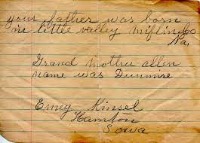 your father was born
in little valley Mifflin co
Pa,
Grand Mother allen
name was Dunmire
Emy Kinsel
Hamton
Iowa